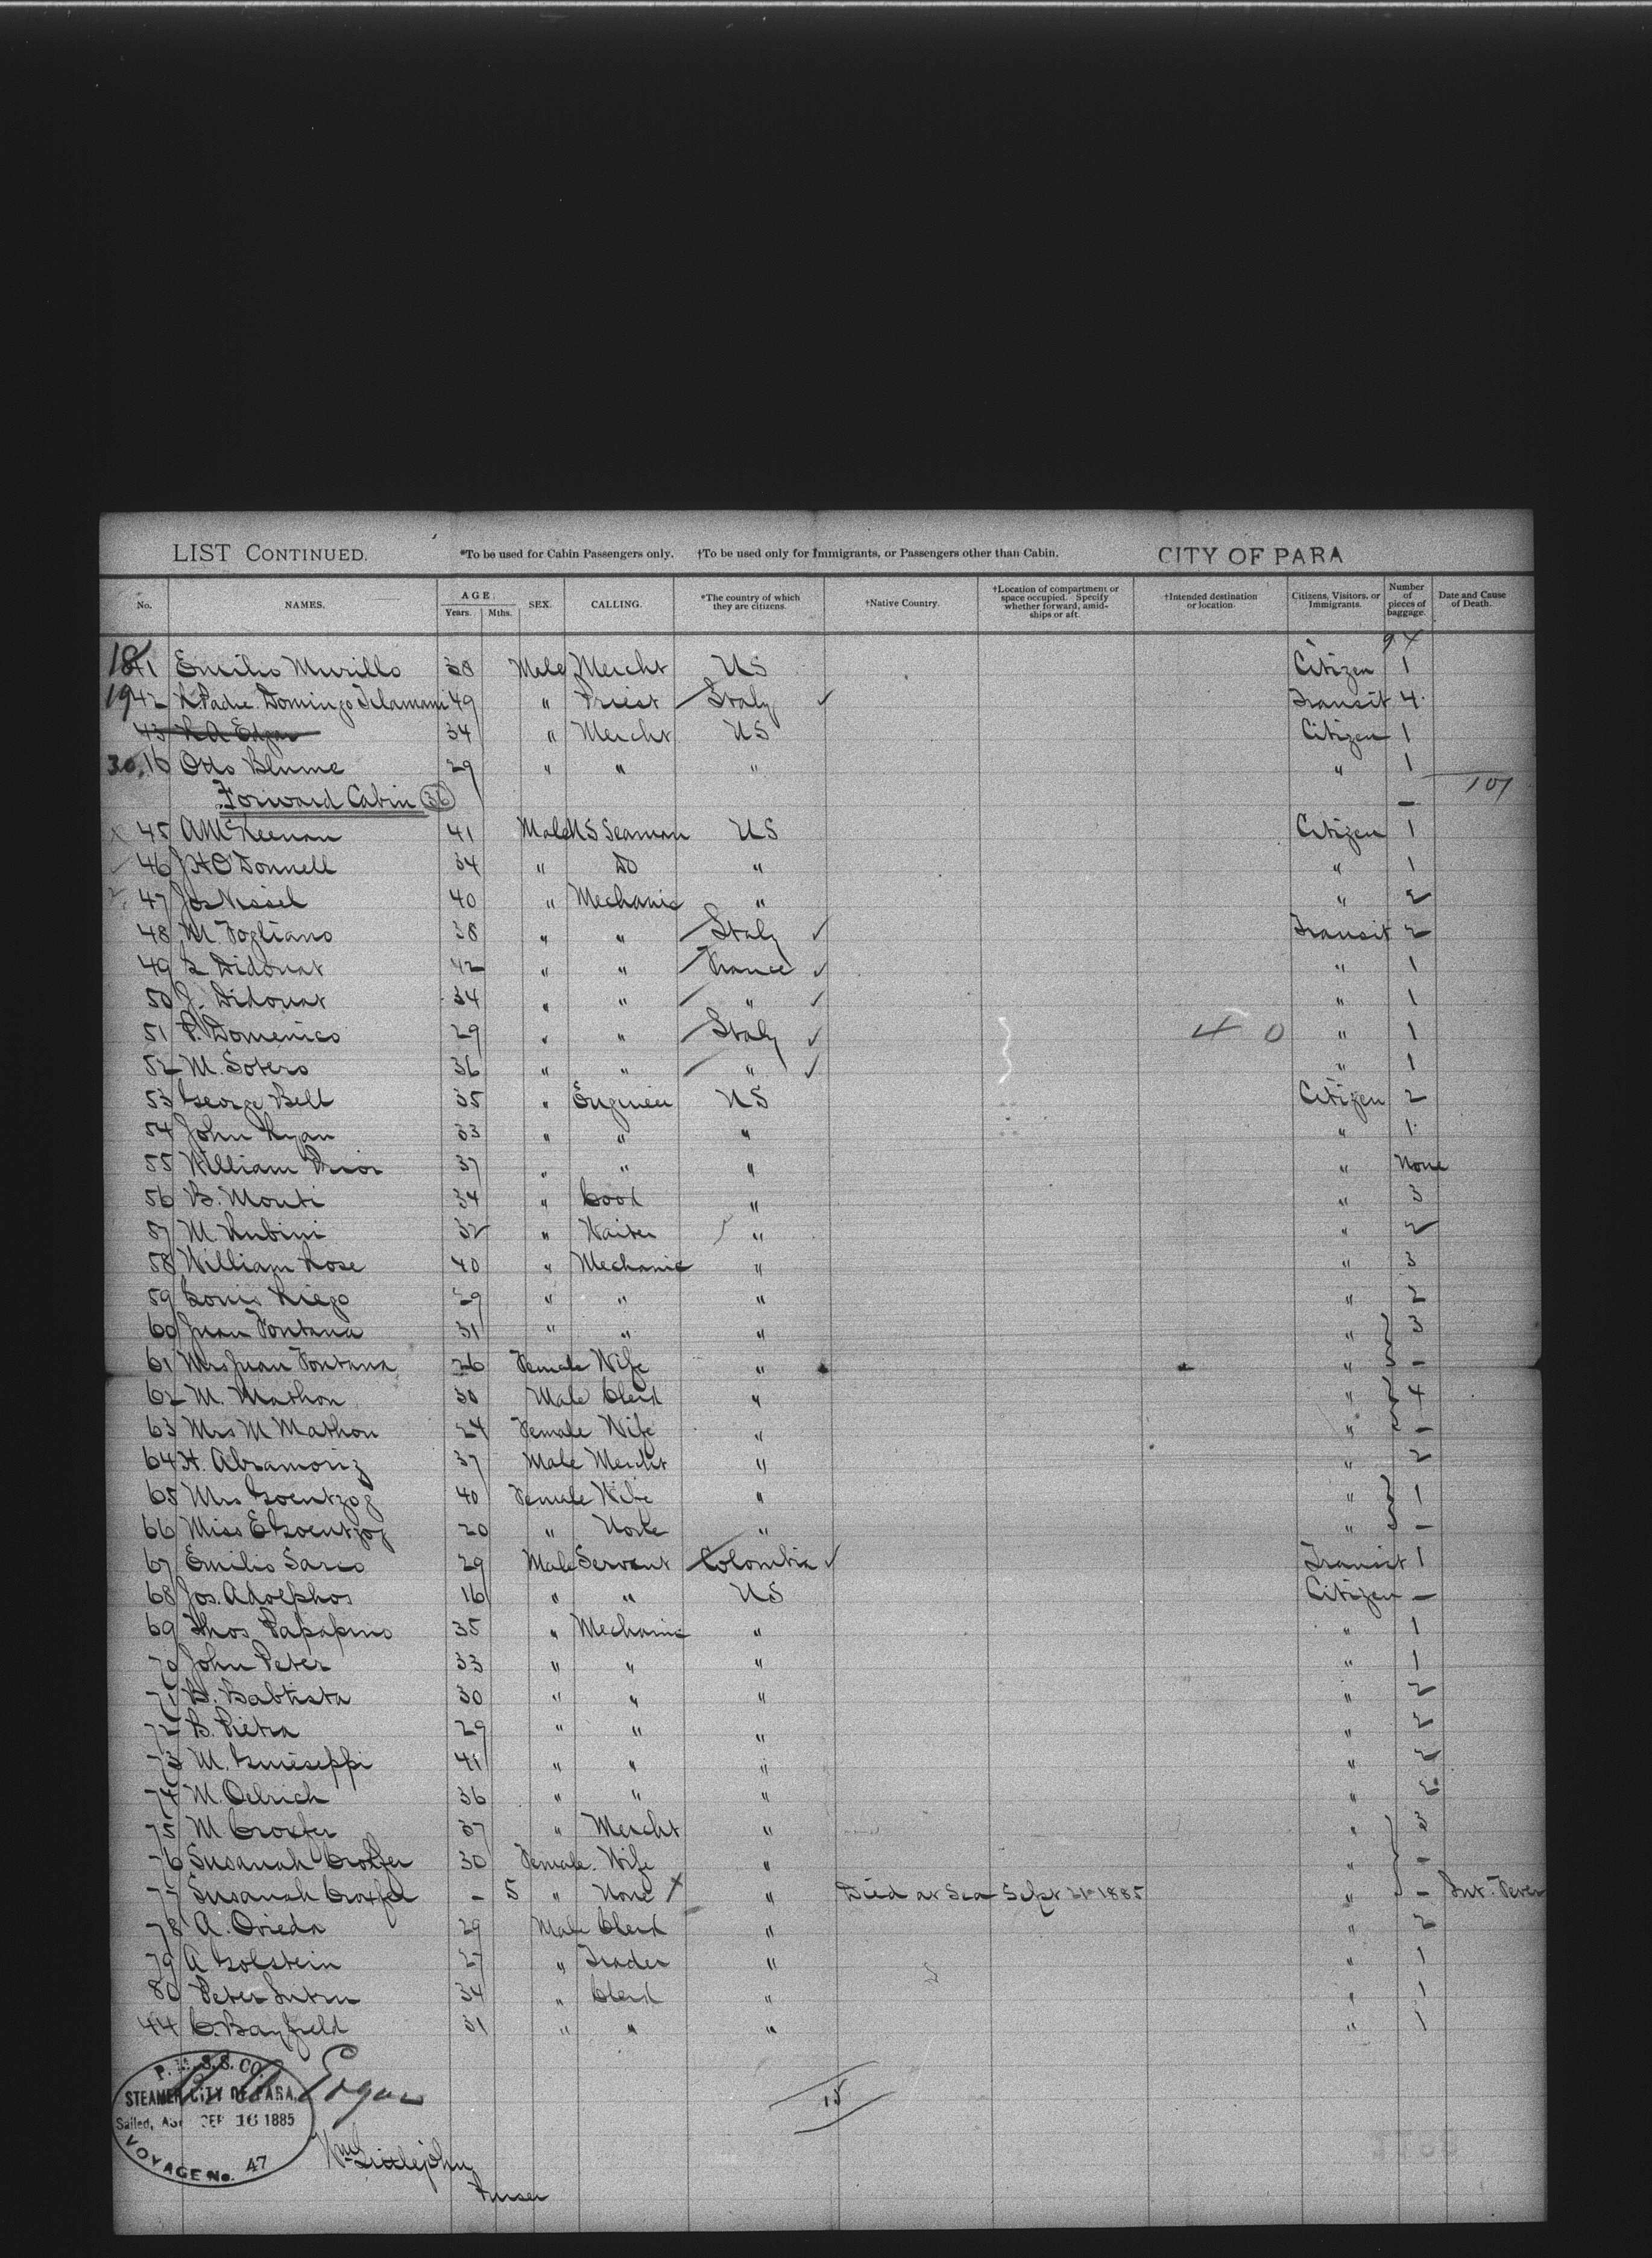 LIST CONTINUED. *To be used for Cabin Passengers only. †To be used only for Immigrants, or Passengers other than Cabin. CITY OF PARA
No. NAMES. AGE. Years. Mths. SEX. CALLING. *The country of which they are citizens. †Native Country †Location of compartment or space occupied. Specify whether forward, amidships or aft. †Intended destination or location. Citizens, Visitors, or Immigrants. Number of pieces of baggage. Date and Cause of Death.
94
18 41 Emilio Murillo 38 Male Mercht US Citizen 1
19 42 R Padre Domingo 49 " Priest Italy ✓ Transit 4
43 R A Edgar 34 " Mercht US Citizen 1
30 16 Otto Blume 29 " " " " 1
Forward Cabin 36 — 101
45 A McKeenan 41 Male US Seaman US Citizen 1
46 J H O'Donnell 34 " Do " " 1
47 Jos Nissel 40 " Mechanic " " 2
48 M. Fogliano 38 " " Italy ✓ Transit 2
49 L Didonat 42 " " France ✓ " 1
50 J. Didonat 34 " " " ✓ " 1
51 P. Domenico 29 " " Italy ✓ 40 " 1
52 M. Sotero 36 " " " ✓ " 1
53 George Bell 35 " Engineer US Citizen 2
54 John Ryan 33 " " " " 1
55 William Prior 37 " " " " None
56 B. Monti 34 " Cook " " 3
57 M. Rubini 32 " Waiter " " 2
58 William Rose 40 " Mechanic " " 3
59 Louis Riego 29 " " " " 2
60 Juan Fontana 31 " " " " 3
61 Mrs Juan Fontana 26 Female Wife " " -
62 M. Mathon 30 Male Clerk " " 4
63 Mrs M Mathon 24 Female Wife " " -
64 H. Abramoriz 37 Male Mercht " " 2
65 Mrs Goentzog 40 Female Wife " " 1
66 Miss E Goentzog 20 " None " " -
67 Emilio Sarco 29 Male Servant Colombia ✓ Transit 1
68 Jos. Adolphos 16 " " US Citizen —
69 Thos Papapino 35 " Mechanic " " 1
70 John Peter 33 " " " " 1
71 B. Babtista 30 " " " " 2
72 B. Pietra 29 " " " " 2
73 M. Guiseppi 41 " " " " 2
74 M. Oelrich 36 " " " " 2
75 M Croxfer 37 " Mercht " " 3
76 Susanah Croxfer 30 Female. Wife " " -
77 Susanah Croxfer - 5 " None " Died at Sea Sept 21st 1885 " - Int. Fever
78 A. Ovieda 29 Male Clerk " " 2
79 A Golstein 27 " Trader " " 1
80 Peter 34 " Clerk " " 1
44 C. Bayfield 31 " " " " 1
R A Edgar
15
P. M. S. S. CO.
STEAMER CITY OF PARA,
Sailed, SEP 16 1885
VOYAGE No. 47
Wm Littlejohn
Purser